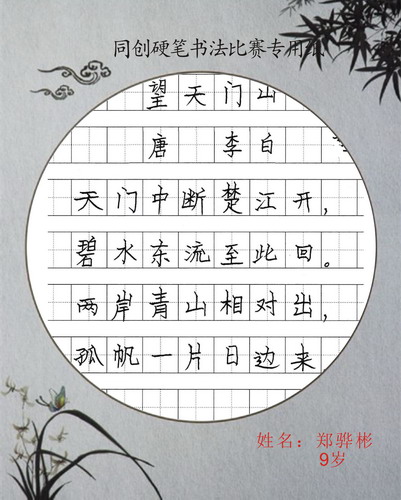 同创硬笔书法比赛专用纸
望天门山
唐 李白
天门中断楚江开，
碧水东流至此回。
两岸青山相对出，
孤帆一片日边来
姓名：郑骅彬
9岁